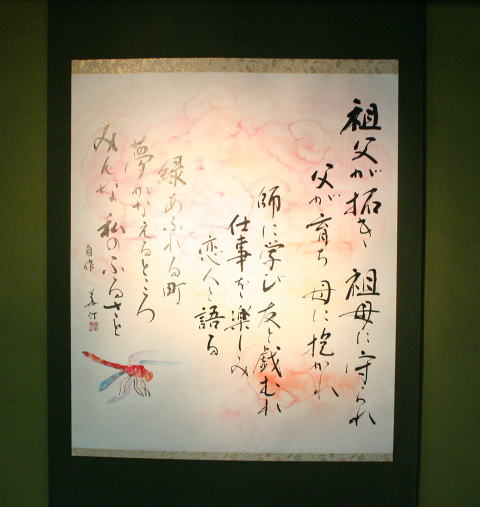 祖父が拓き 祖母に守られ
父が育ち 母に抱かれ
師に学び 友と戯むれ
仕事を楽しみ
恋人と語る
緑あふれる町
夢かなえるところ
みんな私のふるさと
自作